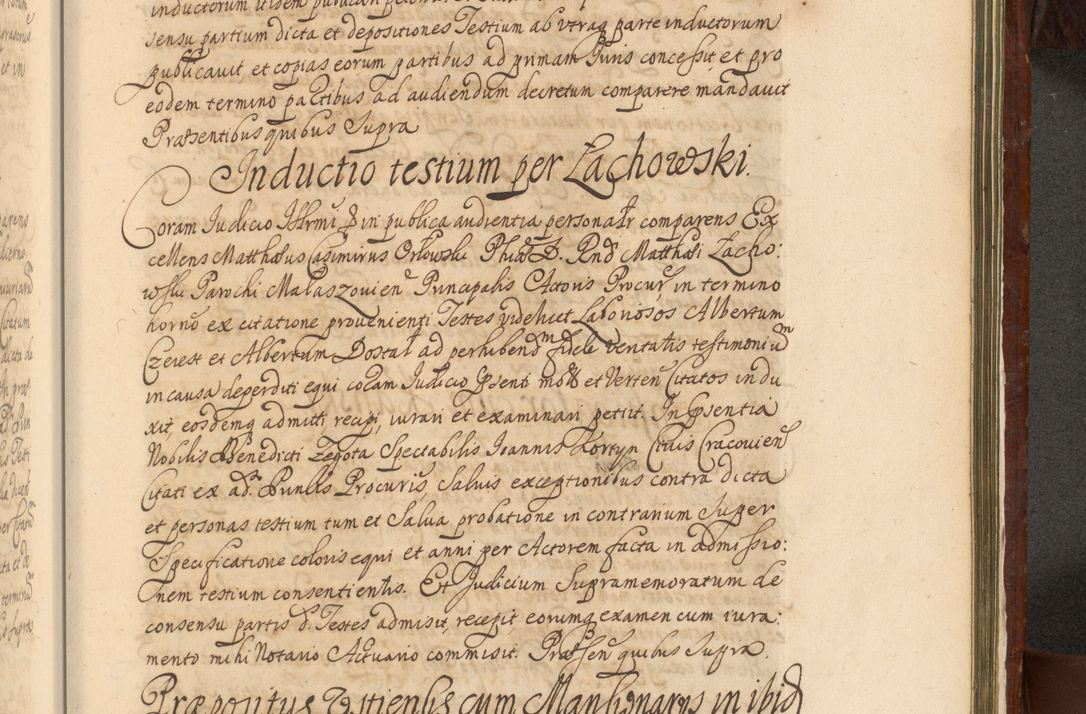 sensu partium dicta et depositiones Testium ab vtraq parte inductorum
publicauit, et copias eorum partibus ad primam Juris concessit, et pro
eodem termino partibus ad audiendum decretum comparere mandauit
Præsentibus quibus Supra
Inductio testium per Lachowski.
Coram Judicio Illrmi D in publica audientia personalr comparens Ex
cellens Matthæus Casimirus Orłowski Phiæ D. Rnd Matthæi Lacho:
wski Parochi Małaszovien Principalis Actoris Procur in termino
horno ex citatione provenienti Testes videlicet Laboriosos Albertum
Czeiest et Albertum Dostał ad perhibendm fidele veritatis testimonium
in causa deperditi equi coram Judicio psenti mota et Verten Citatos indu
xit, eosdemq admitti recipi, iurari et examinari petiit. In psentia
Nobilis Benedicti Zegota Spectabilis Joannis Kortyn Ciuis Cracovien
Citati ex ad Punctis Procuris, Saluis exceptionibus contra dicta
et personas testium tum et Salua probatione in contrarium Super
Specificatione coloris equi et anni per Actorem facta in admissio:
nem testium consentientis. Et Judicium Supramemoratum de
consensu partis d. Testes admisit, recepit, eorumq examen cum iura:
mento mihi Notario Actuario commisit. Præsen quibus Supra.
Præpositus cum Mansionarys in ibid